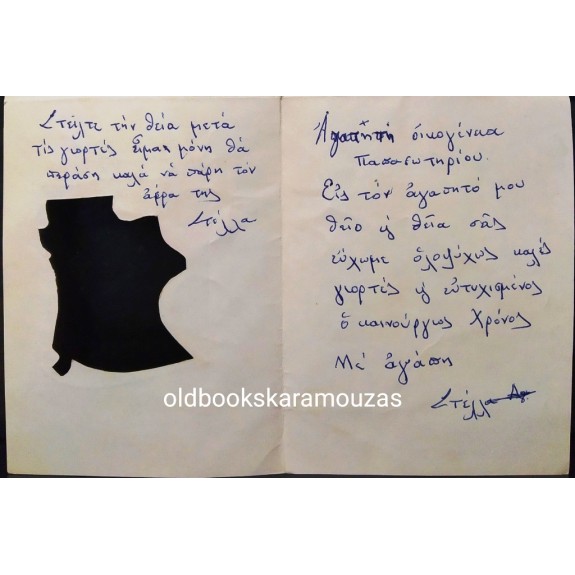 Στείλτε τήν θεία μετά
τίς γιορτές εἶμαι μόνη θά
περάση καλά νά πάρη τόν
ἀέρα της
Στέλλα
Ἀγαπητή οἰκογένεια
Παπασωτηρίου.
Εἰς τόν ἀγαπητό μου
θεῖο κ θεῖα σᾶς
εὔχωμε ὁλοψύχως καλές
γιορτές κ εὐτυχισμένος
ὁ καινούργιος Χρόνος
Μέ ἀγάπη
Στέλλα
oldbookskaramouzas